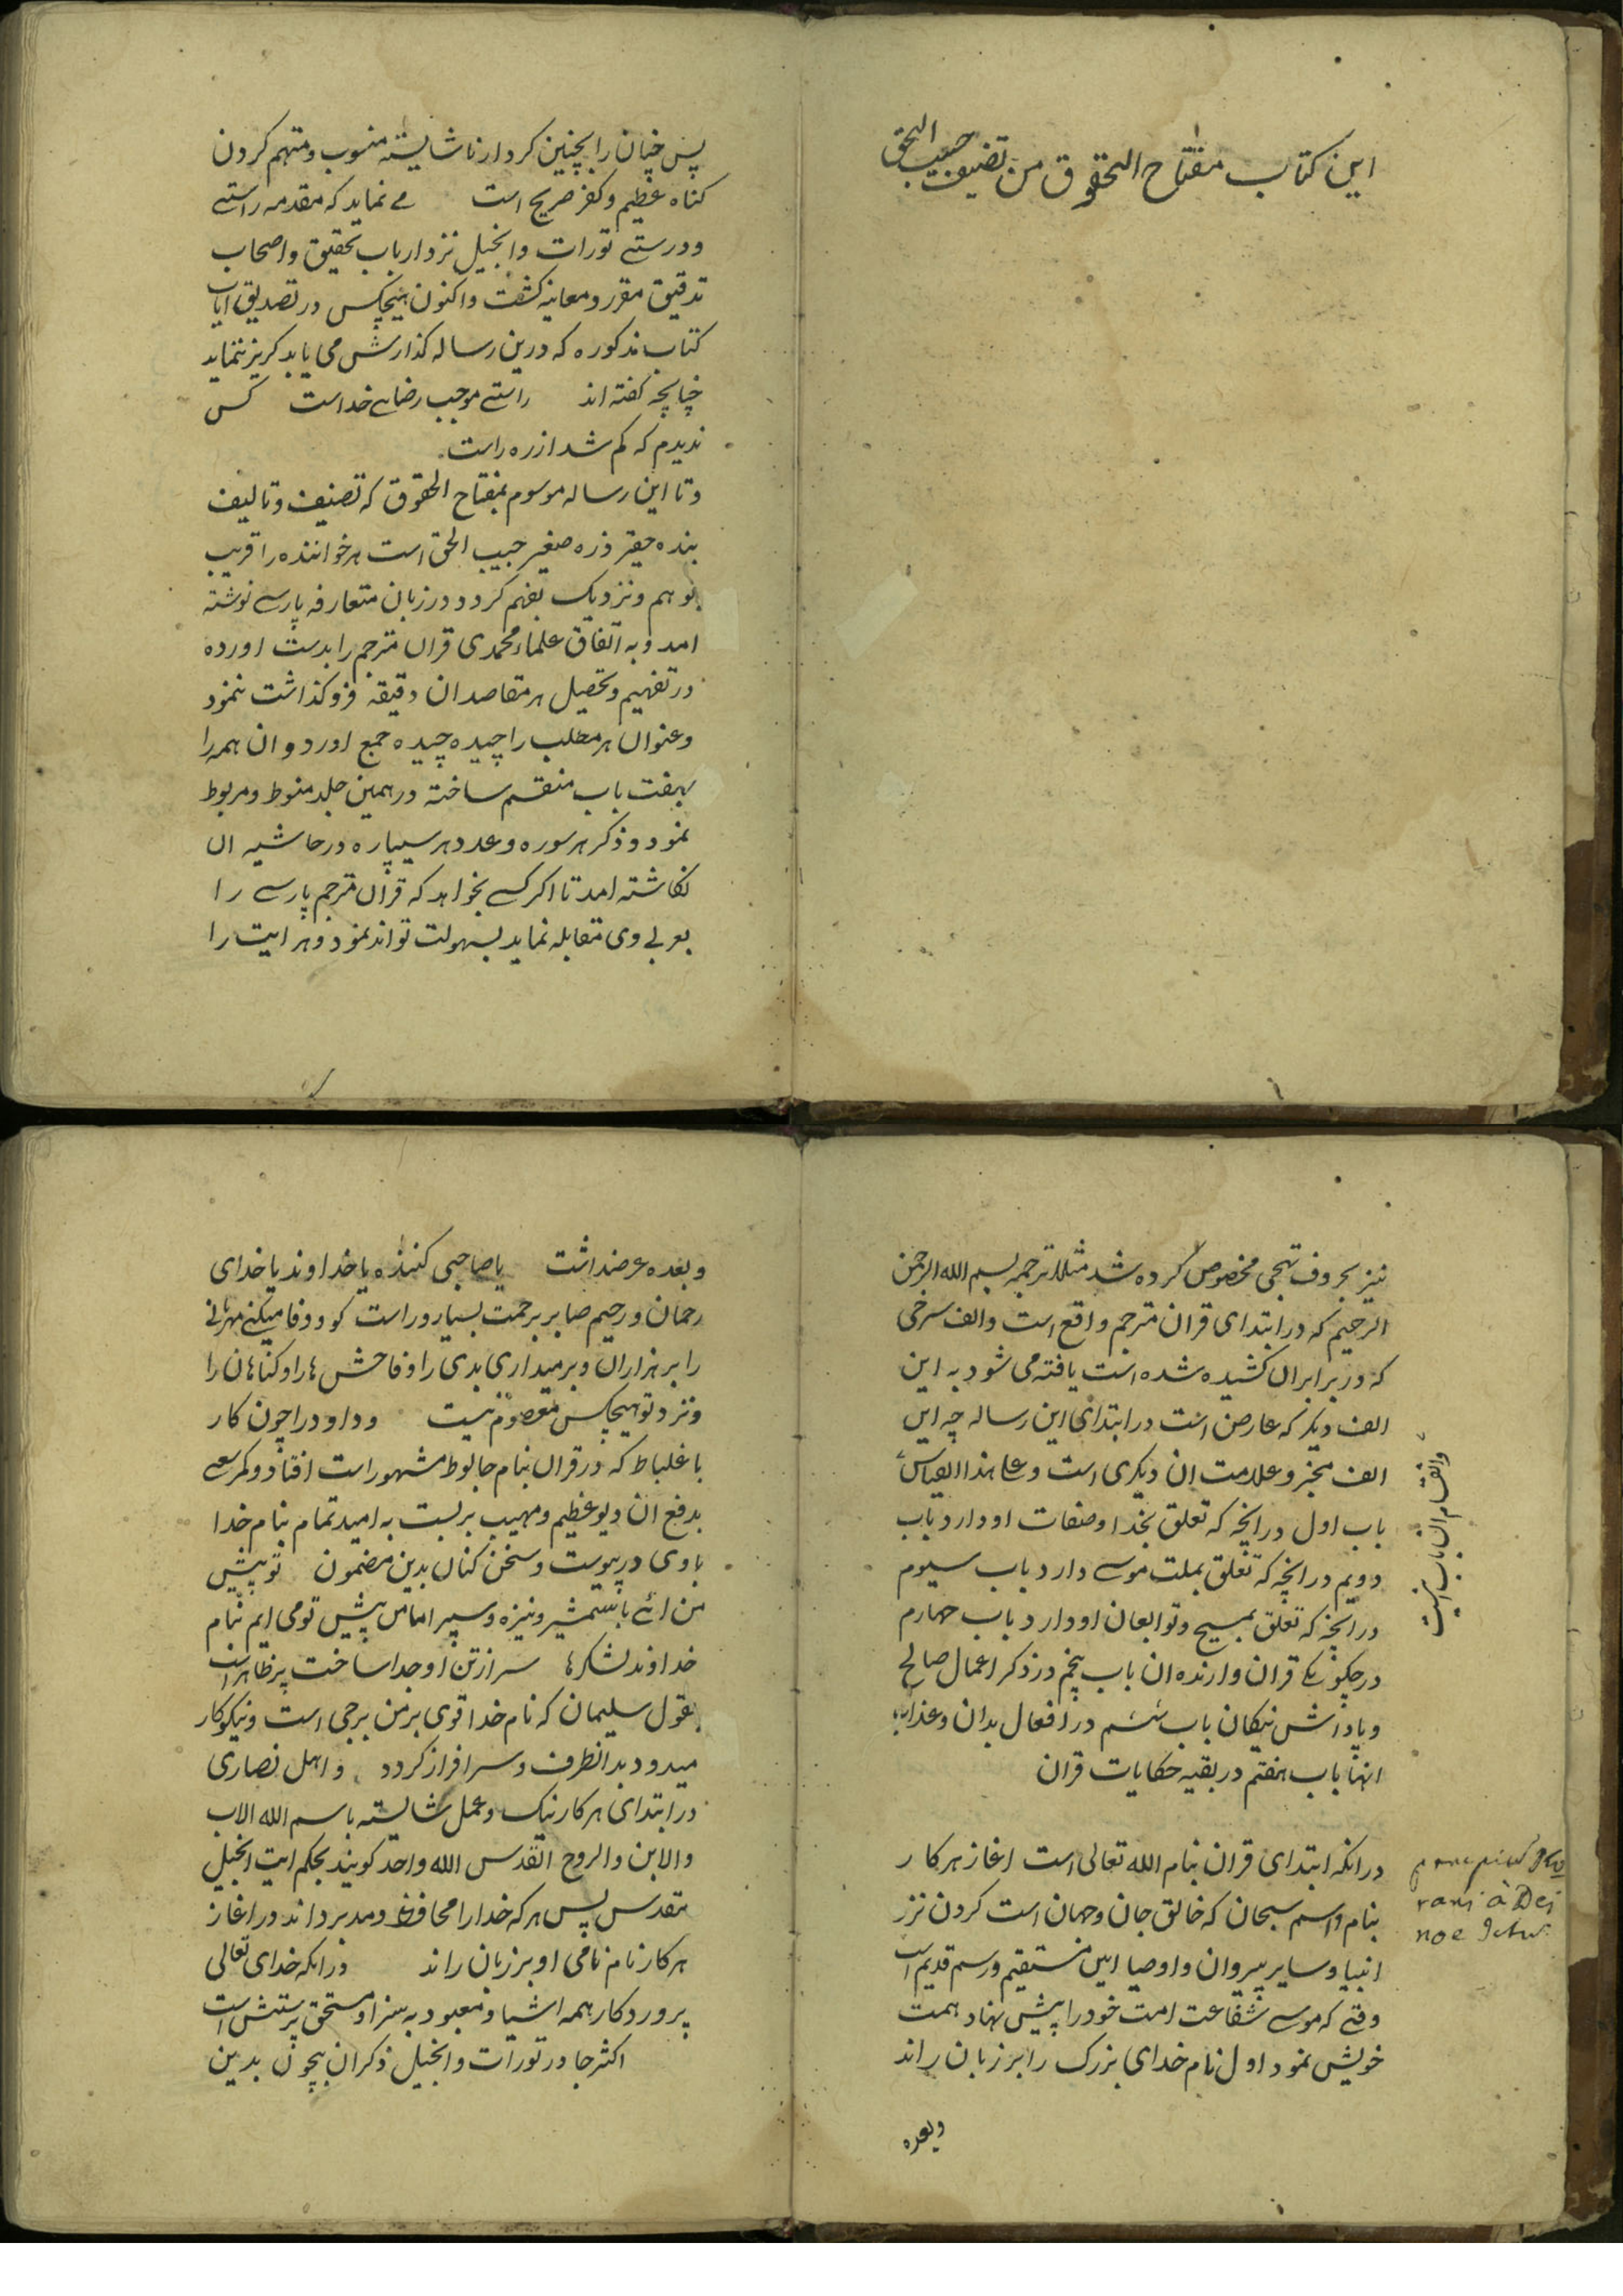 این کتاب مفتاح الحقوق من تصنیف حبیب الحق
پس چنان را بچنین کردار ناشایسته منسوب و متهم کردن
کناه عظیم و کفر صریح است می نماید که مقدمه راستے
و درستے تورات و انجیل نزد ارباب تحقیق و اصحاب
تدقیق مقرر و معاینه کشت و اکنون هیچکس در تصدیق ایات
کتاب مذکوره که درین رساله کذارش می یابد کریز ننماید
چنانچه کفته اند راستے موجب رضاے خداست کس
ندیدم که کم شد از ره راست
و تا این رساله موسوم بمفتاح الحقوق که تصنیف و تالیف
بنده حقیر ذره صغیر حبیب الحق است هر خواننده را قریب
بوهم و نزدیک بفهم کردد در زبان متعارفه پارسے نوشته
امد و به اتفاق علماء محمدی قران مترجم را بدست اورده
در تفهیم و تحصیل هر مقاصد ان دقیقه فروکذاشت ننمود
و عنوان هر مطلب را چیده چیده جمع اورد و ان همه را
بهفت باب منقسم ساخته در همین جلد منوط و مربوط
نمود و ذکر هر سوره و عدد هر سیپاره در حاشیه ان
نکاشته امد تا اکر کسے بخواهد که قران مترجم پارسے را
بعربے وی مقابله نماید بسهولت تواند نمود و هر ایت را
نیز بحروف تهجی مخصوص کرده شد مثلا ترجمه بسم الله الرحمن
الرحیم که در ابتدای قران مترجم واقع است و الف سرخی
که در برابر ان کشیده شده است یافته می شود به این
الف دیکر که عارض است در ابتدای این رساله چه این
الف مخبر و علامت ان دیکری است و علی هذا القیاس
و انقسام ان باب اینست
باب اول در انچه که تعلق بخدا و صفات او دارد باب
دویم در انچه که تعلق بملت موسے دارد باب سیوم
در انچه که تعلق بمسیح و توابعان او دارد باب چهارم
در چکونکے قران و ارنده ان باب پنجم در ذکر اعمال صالح
و پاداش نیکان باب ششم در افعال بدان و عذاب
انها باب هفتم در بقیه حکایات قران
در انکه ابتدای قران بنام الله تعالی است اغاز هر کار
بنام و اسم سبحان که خالق جان و جهان است کردن نزد
انبیا و سایر پیروان و اوصیا ایین مستقیم و رسم قدیم است
وقتے که موسے شفاعت امت خود را پیش نهاد همت
خویش نمود اول نام خدای بزرک را بر زبان راند
وبعده
rani à Dei
وبعده عرضداشت یا صاحبی کننده یا خداوند یا خدای
رحمان و رحیم صابر برحمت بسیار و راست کو و وفا میکنے مهربانے
را بر هزاران و برمیداری بدی را و فاحش ها را و کناهان را
و نزد تو هیچکس معصوم نیست و داود را چون کار
با غلیاط که در قران بنام جالوط مشهور است افتاد و کمر سعے
بدفع ان دیو عظیم و مهیب بر بست به امید تمام بنام خدا
با وی در پیوست و سخن کنان بدین مضمون تو پیش
من ائے با شمشیر و نیزه و سپر اما من پیش تو می ایم بنام
خداوند لشکرها سر از تن او جدا ساخت پر ظاهر است
بقول سلیمان که نام خدا قوی بر من برجی است و نیکوکار
میدود بدانطرف و سرافراز کردد و اهل نصاری
در ابتدای هر کار نیک و عمل شایسته باسم الله الاب
والابن والروح القدس الله واحد کویند بحکم ایت انجیل
مقدس پس هر که خدا را محافظ و مدبر داند در اغاز
هر کار نام نامی او بر زبان راند در انکه خدای تعالی
پروردکار همه اشیا و معبود به سزا و مستحق پرستش است
اکثر جا در تورات و انجیل ذکر ان بیچون بدین